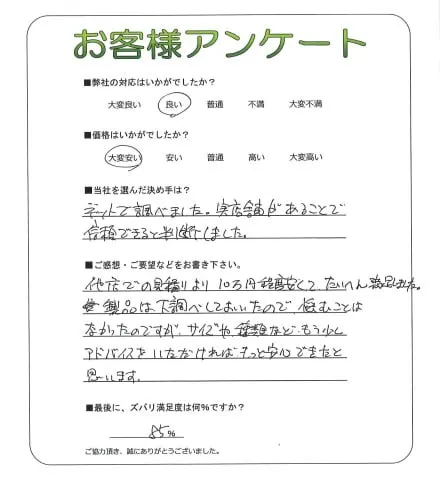 お客様アンケート
■弊社の対応はいかがでしたか?
大変良い 良い 普通 不満 大変不満
■価格はいかがでしたか?
大変安い 安い 普通 高い 大変高い
■当社を選んだ決め手は?
ネットで調べました。実店舗があることで
信頼できると判断しました。
■ご感想・ご要望などをお書き下さい。
他店での見積りより10万円程度安くて、たいへん満足しました。
製品は下調べしておいたので悩むことは
なかったのですが、サイズや種類など、もう少し
アドバイスをいただければもっと安心できたと
思います。
■最後に、ズバリ満足度は何%ですか?
85%
ご協力頂き、誠にありがとうございました。